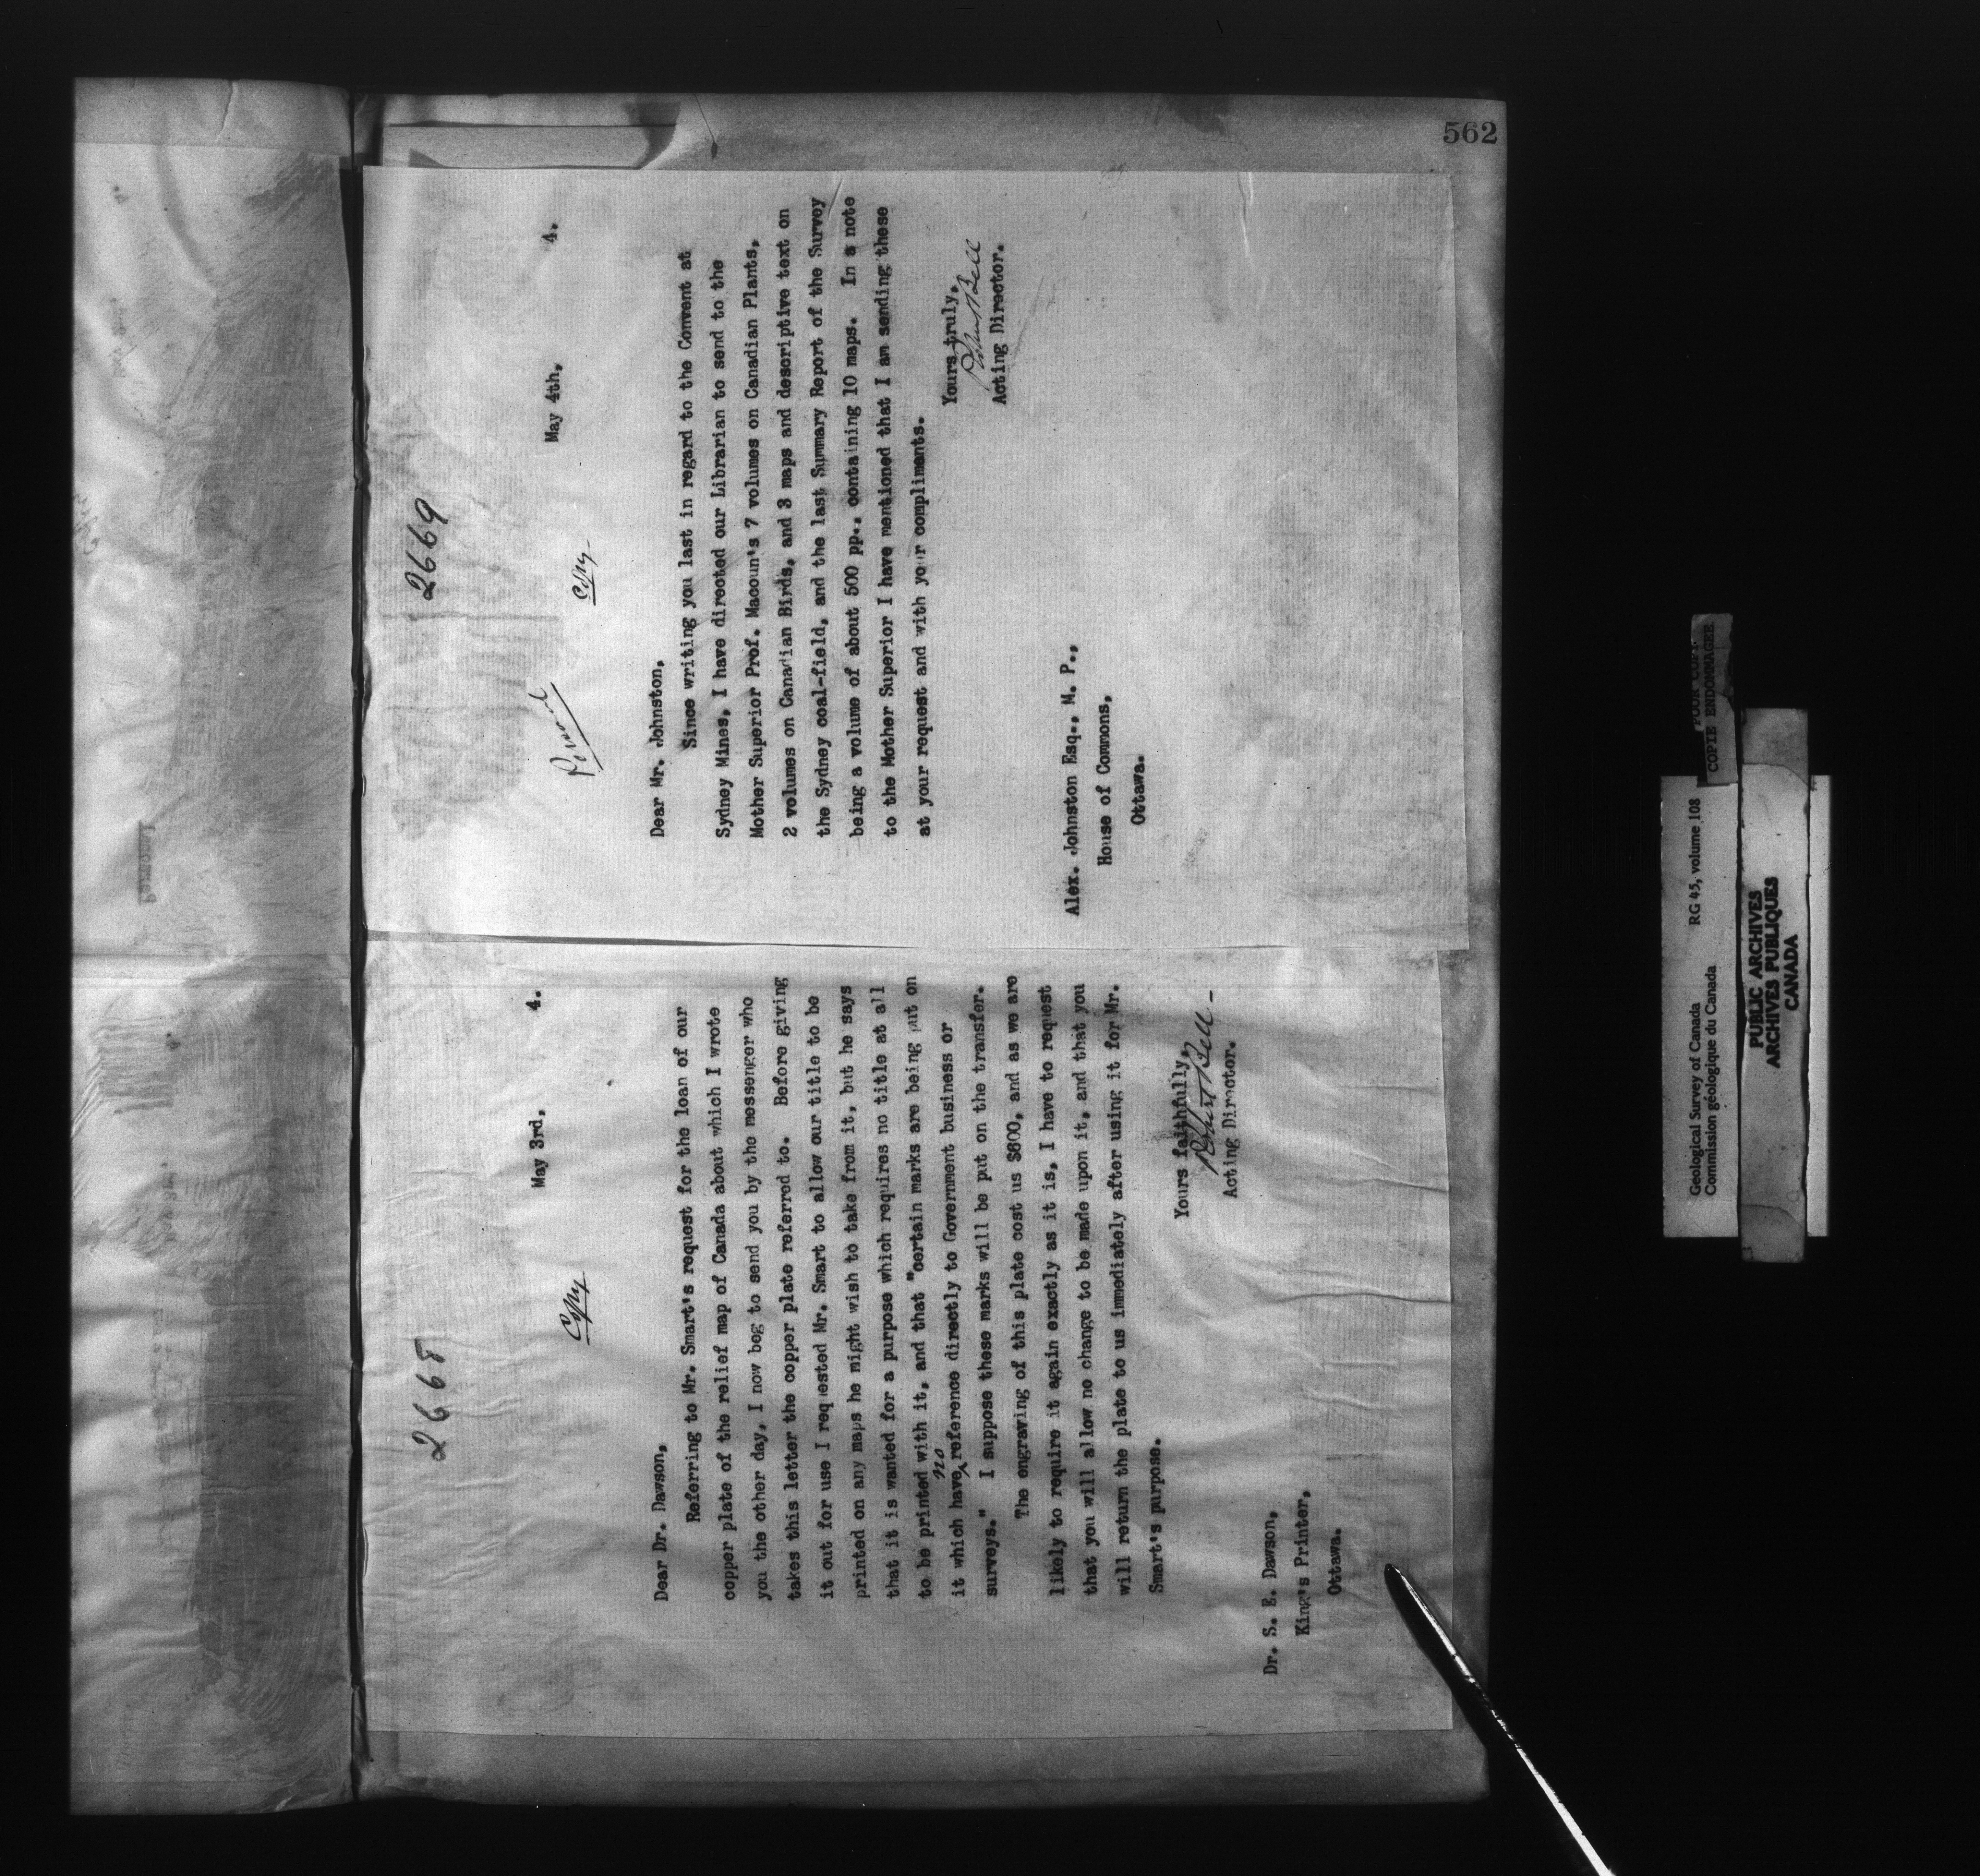 562
2668
Copy
May 3rd, 4.
Dear Dr. Dawson,
Referring to Mr. Smart's request for the loan of our
copper plate of the relief map of Canada about which I wrote
you the other day, I now beg to send you by the messenger who
takes this letter the copper plate referred to. Before giving
it out for use I requested Mr. Smart to allow our title to be
printed on any maps he might wish to take from it, but he says
that it is wanted for a purpose which requires no title at all
to be printed with it, and that "certain marks are being put on
it which have no reference directly to Government business or
surveys." I suppose these marks will be put on the transfer.
The engraving of this plate cost us $600, and as we are
likely to require it again exactly as it is, I have to request
that you will allow no change to be made upon it, and that you
will return the plate to us immediately after using it for Mr.
Smart's purpose.
Yours faithfully,
Robert Bell -
Acting Director.
Dr. S. E. Dawson,
King's Printer,
Ottawa.
2669
Personal
Copy
May 4th, 4.
Dear Mr. Johnston,
Since writing you last in regard to the Convent at
Sydney Mines, I have directed our Librarian to send to the
Mother Superior Prof. Macoun's 7 volumes on Canadian Plants,
2 volumes on Canadian Birds, and 3 maps and descriptive text on
the Sydney coal-field, and the last Summary Report of the Survey
being a volume of about 500 pp., containing 10 maps. In a note
to the Mother Superior I have mentioned that I am sending these
at your request and with your compliments.
Yours truly,
Robert Bell
Acting Director.
Alex. Johnston Esq., M. P.,
House of Commons,
Ottawa.
Geological Survey of Canada RG 45, volume 108
Commission géologique du Canada
POOR COPY
COPIE ENDOMMAGEE
PUBLIC ARCHIVES
ARCHIVES PUBLIQUES
CANADA